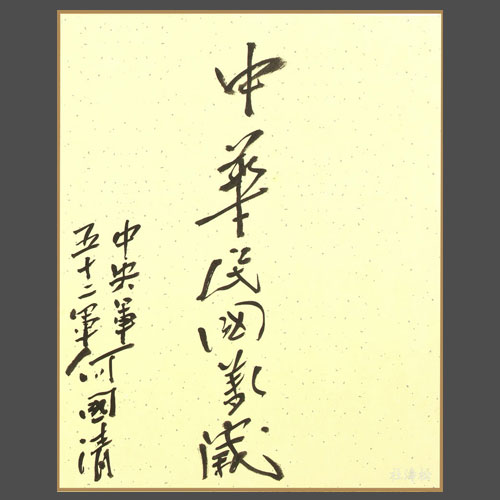 中華民國萬歲
中央軍
五十二軍何國清